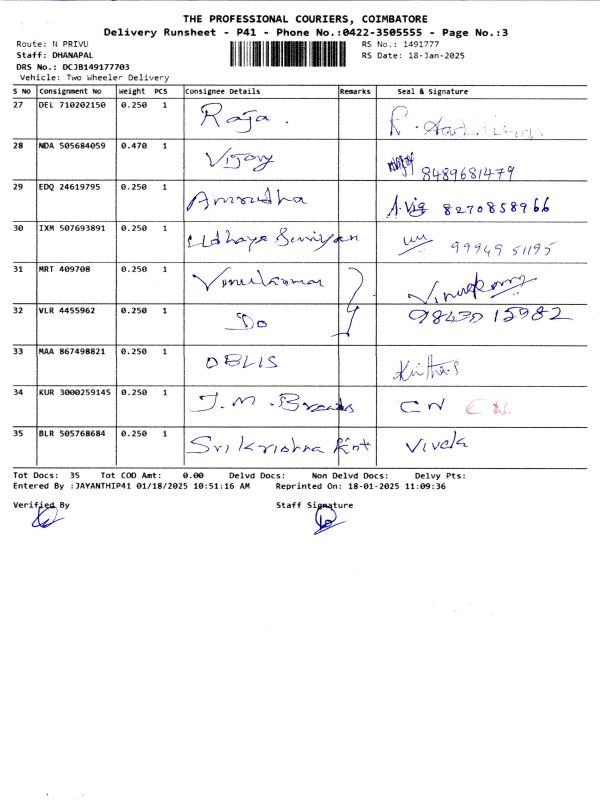 THE PROFESSIONAL COURIERS, COIMBATORE
Delivery Runsheet - P41 - Phone No.:0422-3505555 - Page No.:3
Route: N PRIVU RS No.: 1491777
Staff: DHANAPAL RS Date: 18-Jan-2025
DRS No.: DCJB149177703
Vehicle: Two Wheeler Delivery
S No Consignment No Weight PCS Consignee Details Remarks Seal & Signature
27 DEL 710202150 0.250 1 Raja. R.
28 NDA 505684059 0.470 1 Vijay 8489681479
29 EDQ 24619795 0.250 1 Amrudha A. Vig 8270858966
30 IXM 507693891 0.250 1 Udhaya Suriyan 99949 51195
31 MRT 409708 0.250 1 Vinulkumar
32 VLR 4455962 0.250 1 Do 98430 15982
33 MAA 867498821 0.250 1 OBLIS
34 KUR 3000259145 0.250 1 J.M. Brands CN
35 BLR 505768684 0.250 1 Sri Krishna Knt Vivek
Tot Docs: 35 Tot COD Amt: 0.00 Delvd Docs: Non Delvd Docs: Delvy Pts:
Entered By :JAYANTHIP41 01/18/2025 10:51:16 AM Reprinted On: 18-01-2025 11:09:36
Verified By Staff Signature